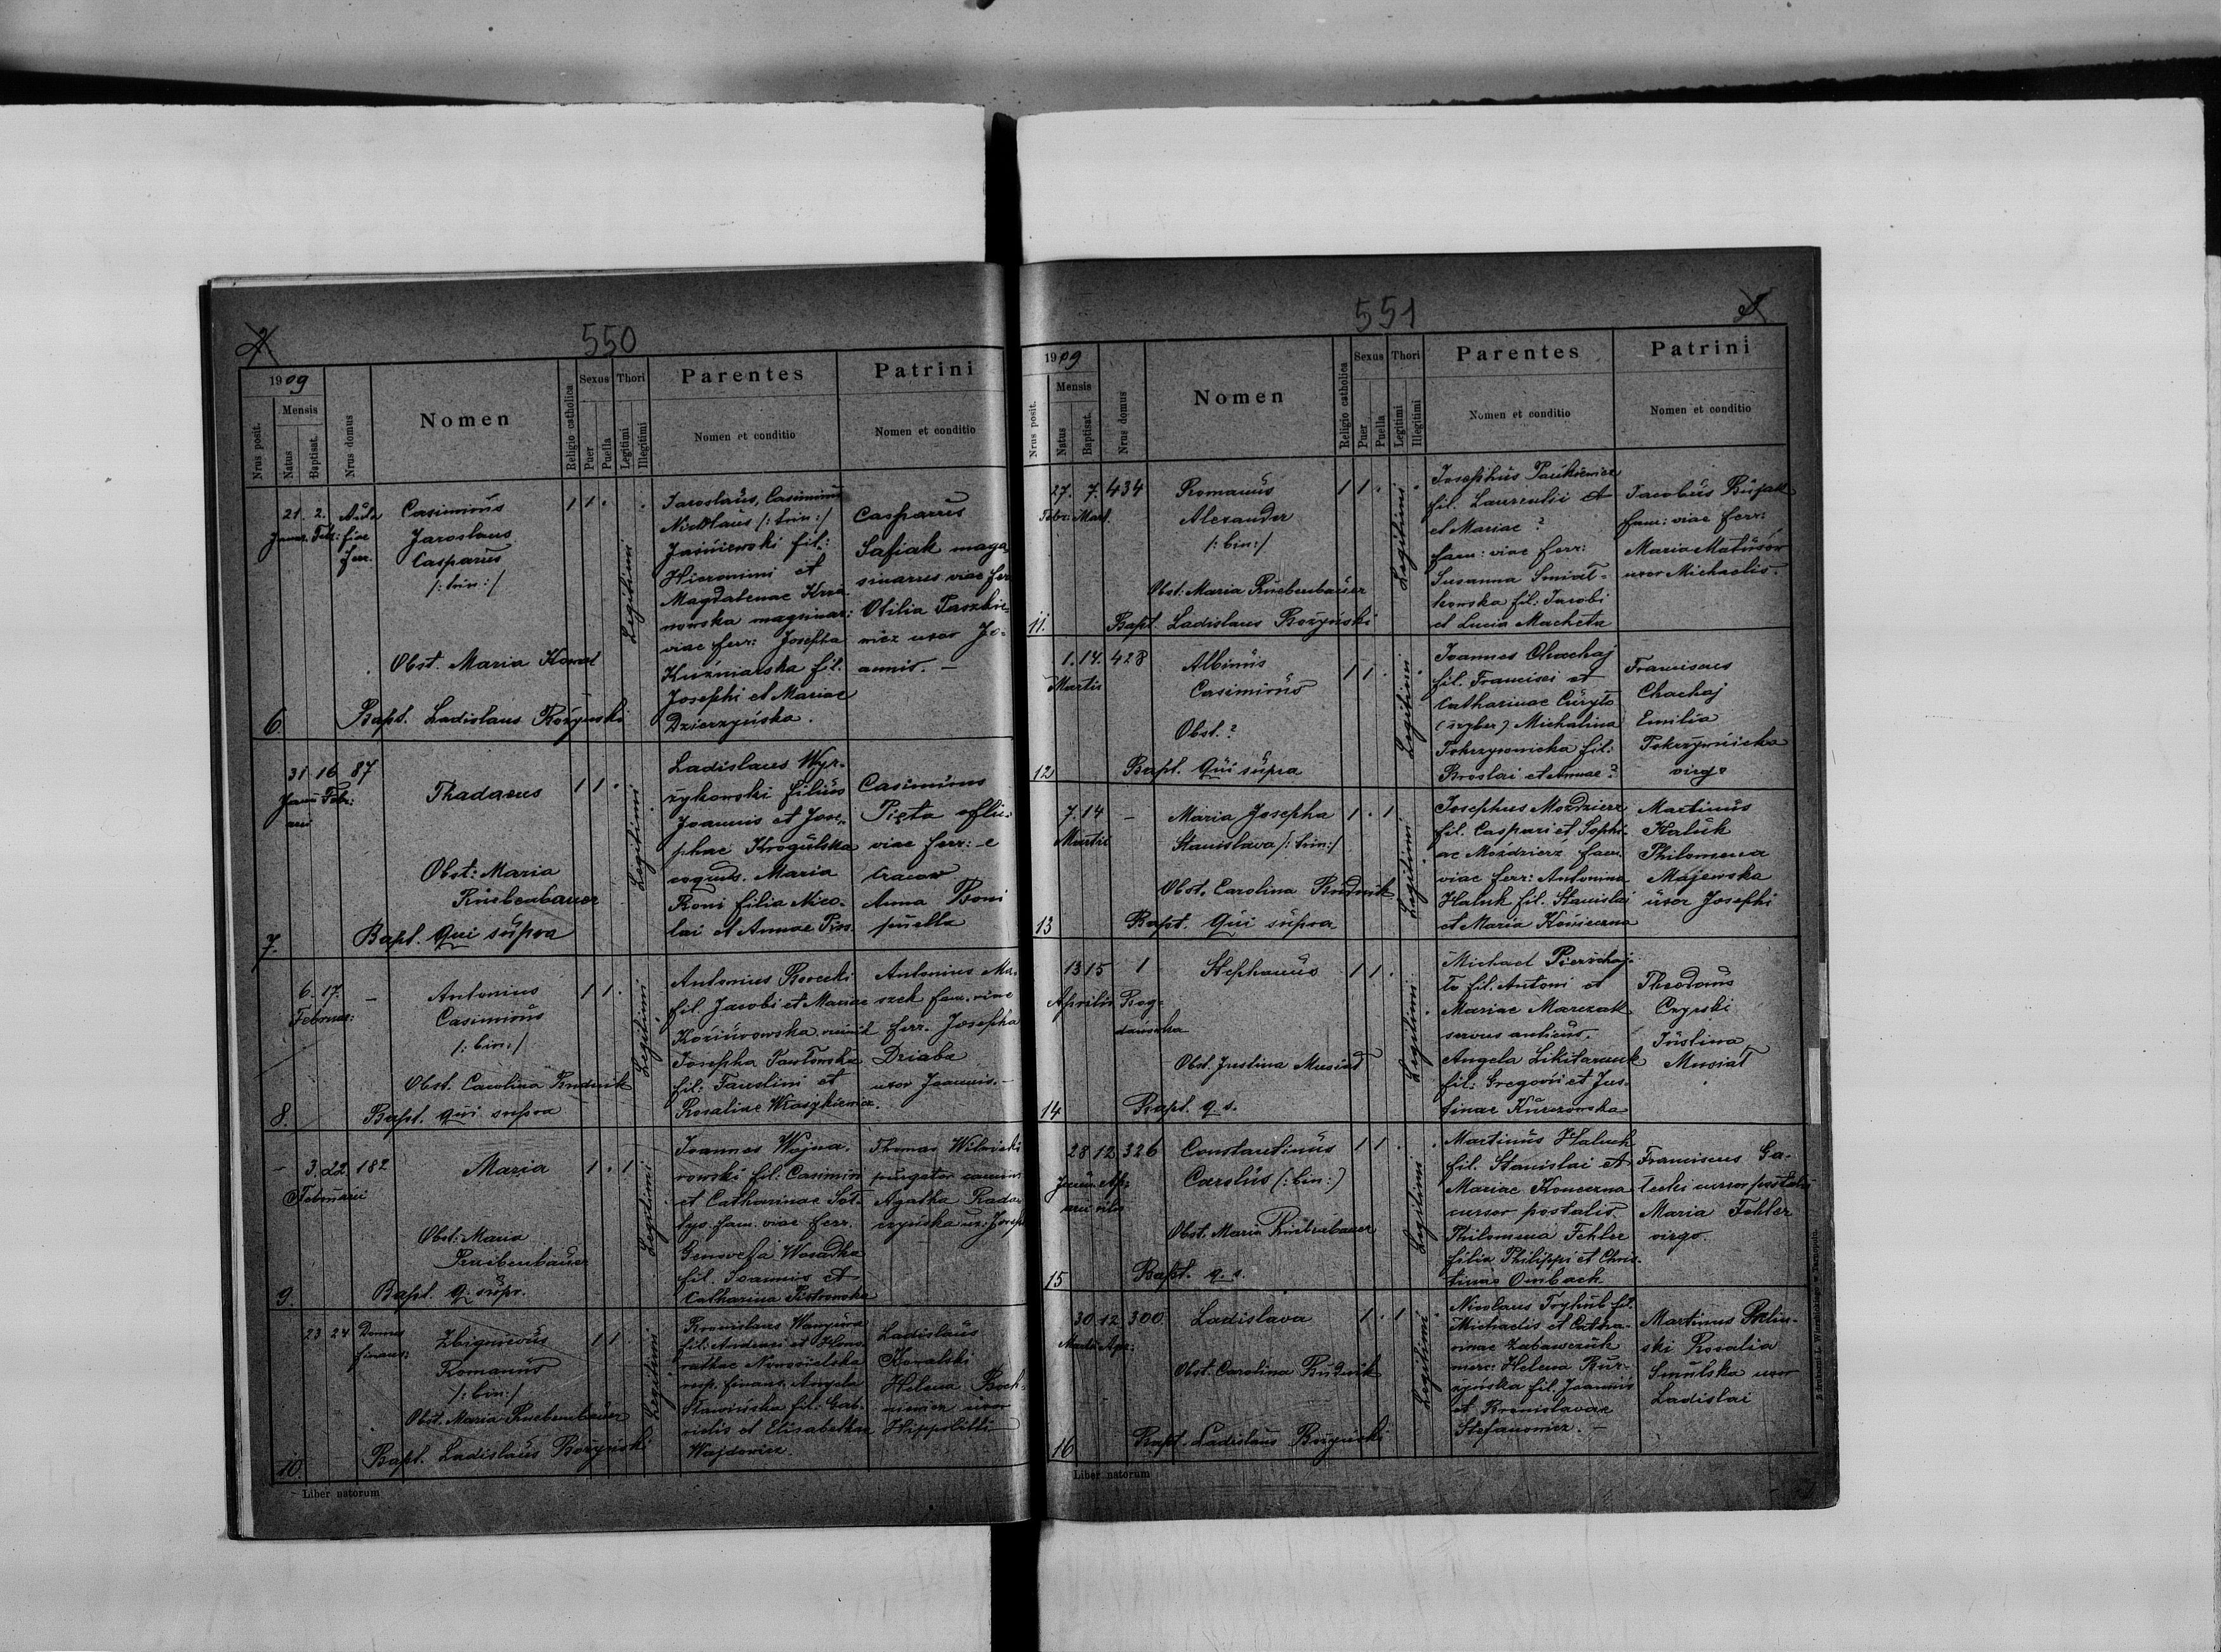 550
1909
Nrus posit.
Mensis
Natus
Baptisat.
Nrus domus
Nomen
Religio catholica
Sexus
Puer
Puella
Thori
Legitimi
Illegitimi
Parentes
Nomen et conditio
Patrini
Nomen et conditio
6.
21. 2.
Januar. Febr:
Casimirus
Jaroslaus
Casparus
/: trin :/
Obst. Maria Kowal
Bapt. Ladislaus Rożyński
1 1 .
Legitimi
Jaroslaus, Casimirus
Nicolaus /: trin :/
Jaśniewski fil:
Hieronimi et
Magdalenae
viae ferr: Josepha
Kuźniarska fil.
Josephi et Mariae
Dzierzyńska.
Casparus
Safiak maga
sinarius viae fer
Otilia Paszkie
wicz uxor Jo-
annis. –
7.
31 16 87
Janu Febr:
arii
Thadaeus
Obst: Maria
Rüebenbauer
Bapt. Qui supra
1 1 .
Legitimi
Ladislaus Wyr-
zykowski filius
Joannis et Jose-
phae Krogulska
Maria
Roni filia Nico-
lai et Annae
Casimirus
Pięta
viae ferr: e
Cracow
Anna Roni
puella
8.
6. 17. –
Februar:
Antonius
Casimirus
/: bin :/
Obst. Carolina Budnik
Bapt. qui supra
1 1 .
Legitimi
Antonius
fil. Jacobi et Mariae
Josepha Pawłowska
fil. Faustini et
Rosaliae
Antonius Ma-
szek fam. viae
ferr. Josepha
Dziaba
uxor Joannis. –
9.
3. 22 182
Februarii
Maria
Obst: Maria
Bapt. q. supr.
1 . 1
Legitimi
Joannes Wojna-
rowski fil: Casimiri
et Catharinae Soł-
tys. fam. viae ferr.
Genovefa
fil. Joannis et
Catharina Piotrowska
Thomas
purgator
Agatha
10.
23 24 Domus
finans:
Zbignievus
Romanus
/: bin :/
Obst. Maria Ruebenbauer
Bapt. Ladislaus Rożyński
1 1
Legitimi
Bronislaus
fil: Andreai et Hono-
rathae
resp. finans. Angela
Sławińska fil: Gab-
rielis et Elisabethae
Wajdowicz.
Ladislaus
Kowalski
Helena Boch-
niewicz uxor
Hippoliti
Liber natorum
551
1909
Nrus posit.
Mensis
Natus
Baptisat.
Nrus domus
Nomen
Religio catholica
Sexus
Puer
Puella
Thori
Legitimi
Illegitimi
Parentes
Nomen et conditio
Patrini
Nomen et conditio
11.
27. 7. 434
Febr: Mart.
Romanus
Alexander
/: bin :/
Obst: Maria Ruebenbauer
Bapt. Ladislaus Rożyński
1 1 .
Legitimi
Josephus
fil. Laurentii et
et Mariae ?
fam: viae ferr:
Susanna Smiat-
kowska fil: Jacobi
et Lucia Macheta
Jacobus Bujak
fam: viae ferr:
Maria
uxor Michaelis.
12
1. 14. 428
Martis
Albinus
Casimirus
Obst. ?
Bapt. Qui supra
1 1 .
Legitimi
Joannes Chachaj
fil. Francisci et
Catharinae Curyło
Michalina
Pokrzywnicka fil:
et Annae ?
Franciscus
Chachaj
Emilia
Pokrzywnicka
virgo
13
7. 14 –
Martii
Maria Josepha
Stanislava /: trin :/
Obst. Carolina Budnik
Bapt. Qui supra
1 . 1
Legitimi
Josephus Moździerz
fil. Caspari et Sophi-
ae Moździerz fam.
viae ferr: Antonina
Haluk fil. Stanislai
et Maria
Martinus
Haluk
Philomena
Majewska
uxor Josephi
14
13 15 1
Aprilis Bog-
danówka
Stephanus
Obst. Justina Musiał
Bapt. q. s.
1 1 .
Legitimi
Michael
fil. Antoni et
Mariae Marczak
servus
Angela Likitarczuk
fil: Gregorii et Jus-
tinae Kurczowska
Theodorus
Justina
Musiał
15
28 12 326
Constantinus
Carolus (: bin :)
Obst. Maria Ruebenbauer
Bapt. q. s.
1 1 .
Legitimi
Martinus Haluch
fil. Stanislai et
Mariae
cursor postalis.
Philomena Fehler
filia Philippi et Chris-
tinae Ombach
Franciscus Ga-
łecki cursor postalis
Maria Fehler
virgo.
16
30 12 300
Martii Apr:
Ladislava
Obst. Carolina Budnik
Bapt. Ladislaus Rożyński
1 . 1
Legitimi
Nicolaus fil.
Michaelis et Catha-
rinae
merc: Helena Bur-
zyńska fil. Joannis
et Bronislavae
Stefanowicz. –
Martinus
ski Rosalia
Smulska uxor
Ladislai
Liber natorum